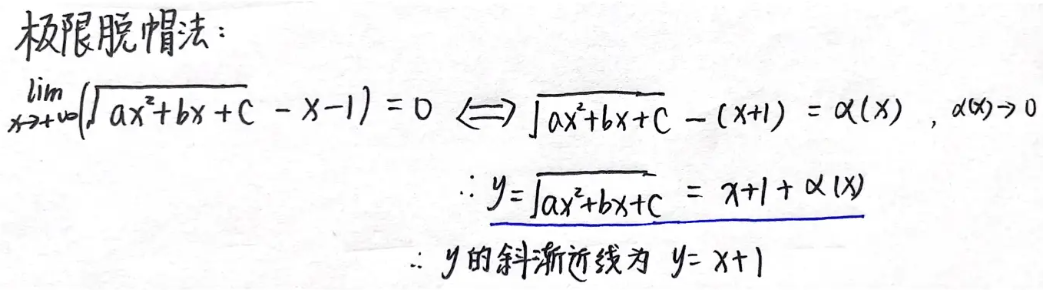 极限脱帽法：
lim x→+∞ (√(ax²+bx+c) - x - 1) = 0 ⟺ √(ax²+bx+c) - (x+1) = α(x) , α(x)→0
∴ y = √(ax²+bx+c) = x+1+α(x)
∴ y的斜渐近线为 y = x+1